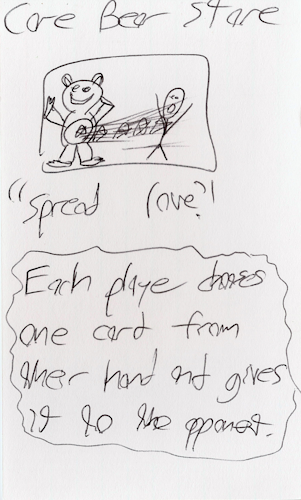 Care Bear Stare
"Spread love"
Each playe chooses
one card from
their hand and gives
it to the opponent.